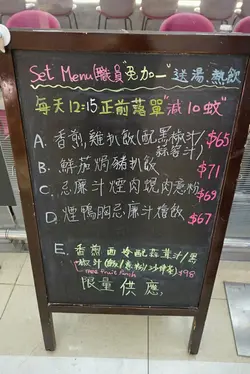 Set Menu(職員"免加一"送湯.熱飲
每天12:15正前落單"減10蚊"
A. 香煎雞扒飯(配黑椒汁/ $65
蒜蓉汁)
B. 鮮茄焗豬扒飯 $71
C. 忌廉汁煙肉燒肉意粉 $69
D. 煙鴨胸忌廉汁燴飯 $67
E. 香煎西冷配蒜茸汁/黑
椒汁(飯/意粉/沙律菜) $98
Free Fruit Punch
限量供應